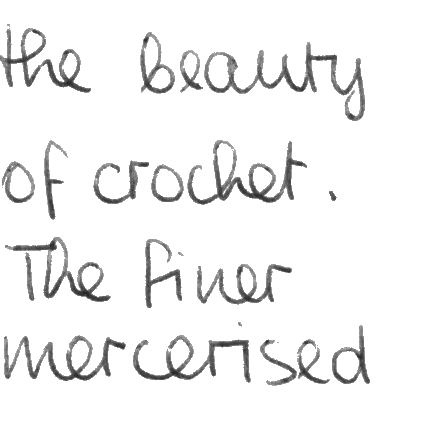 the beauty
of crochet.
The finer
mercerised